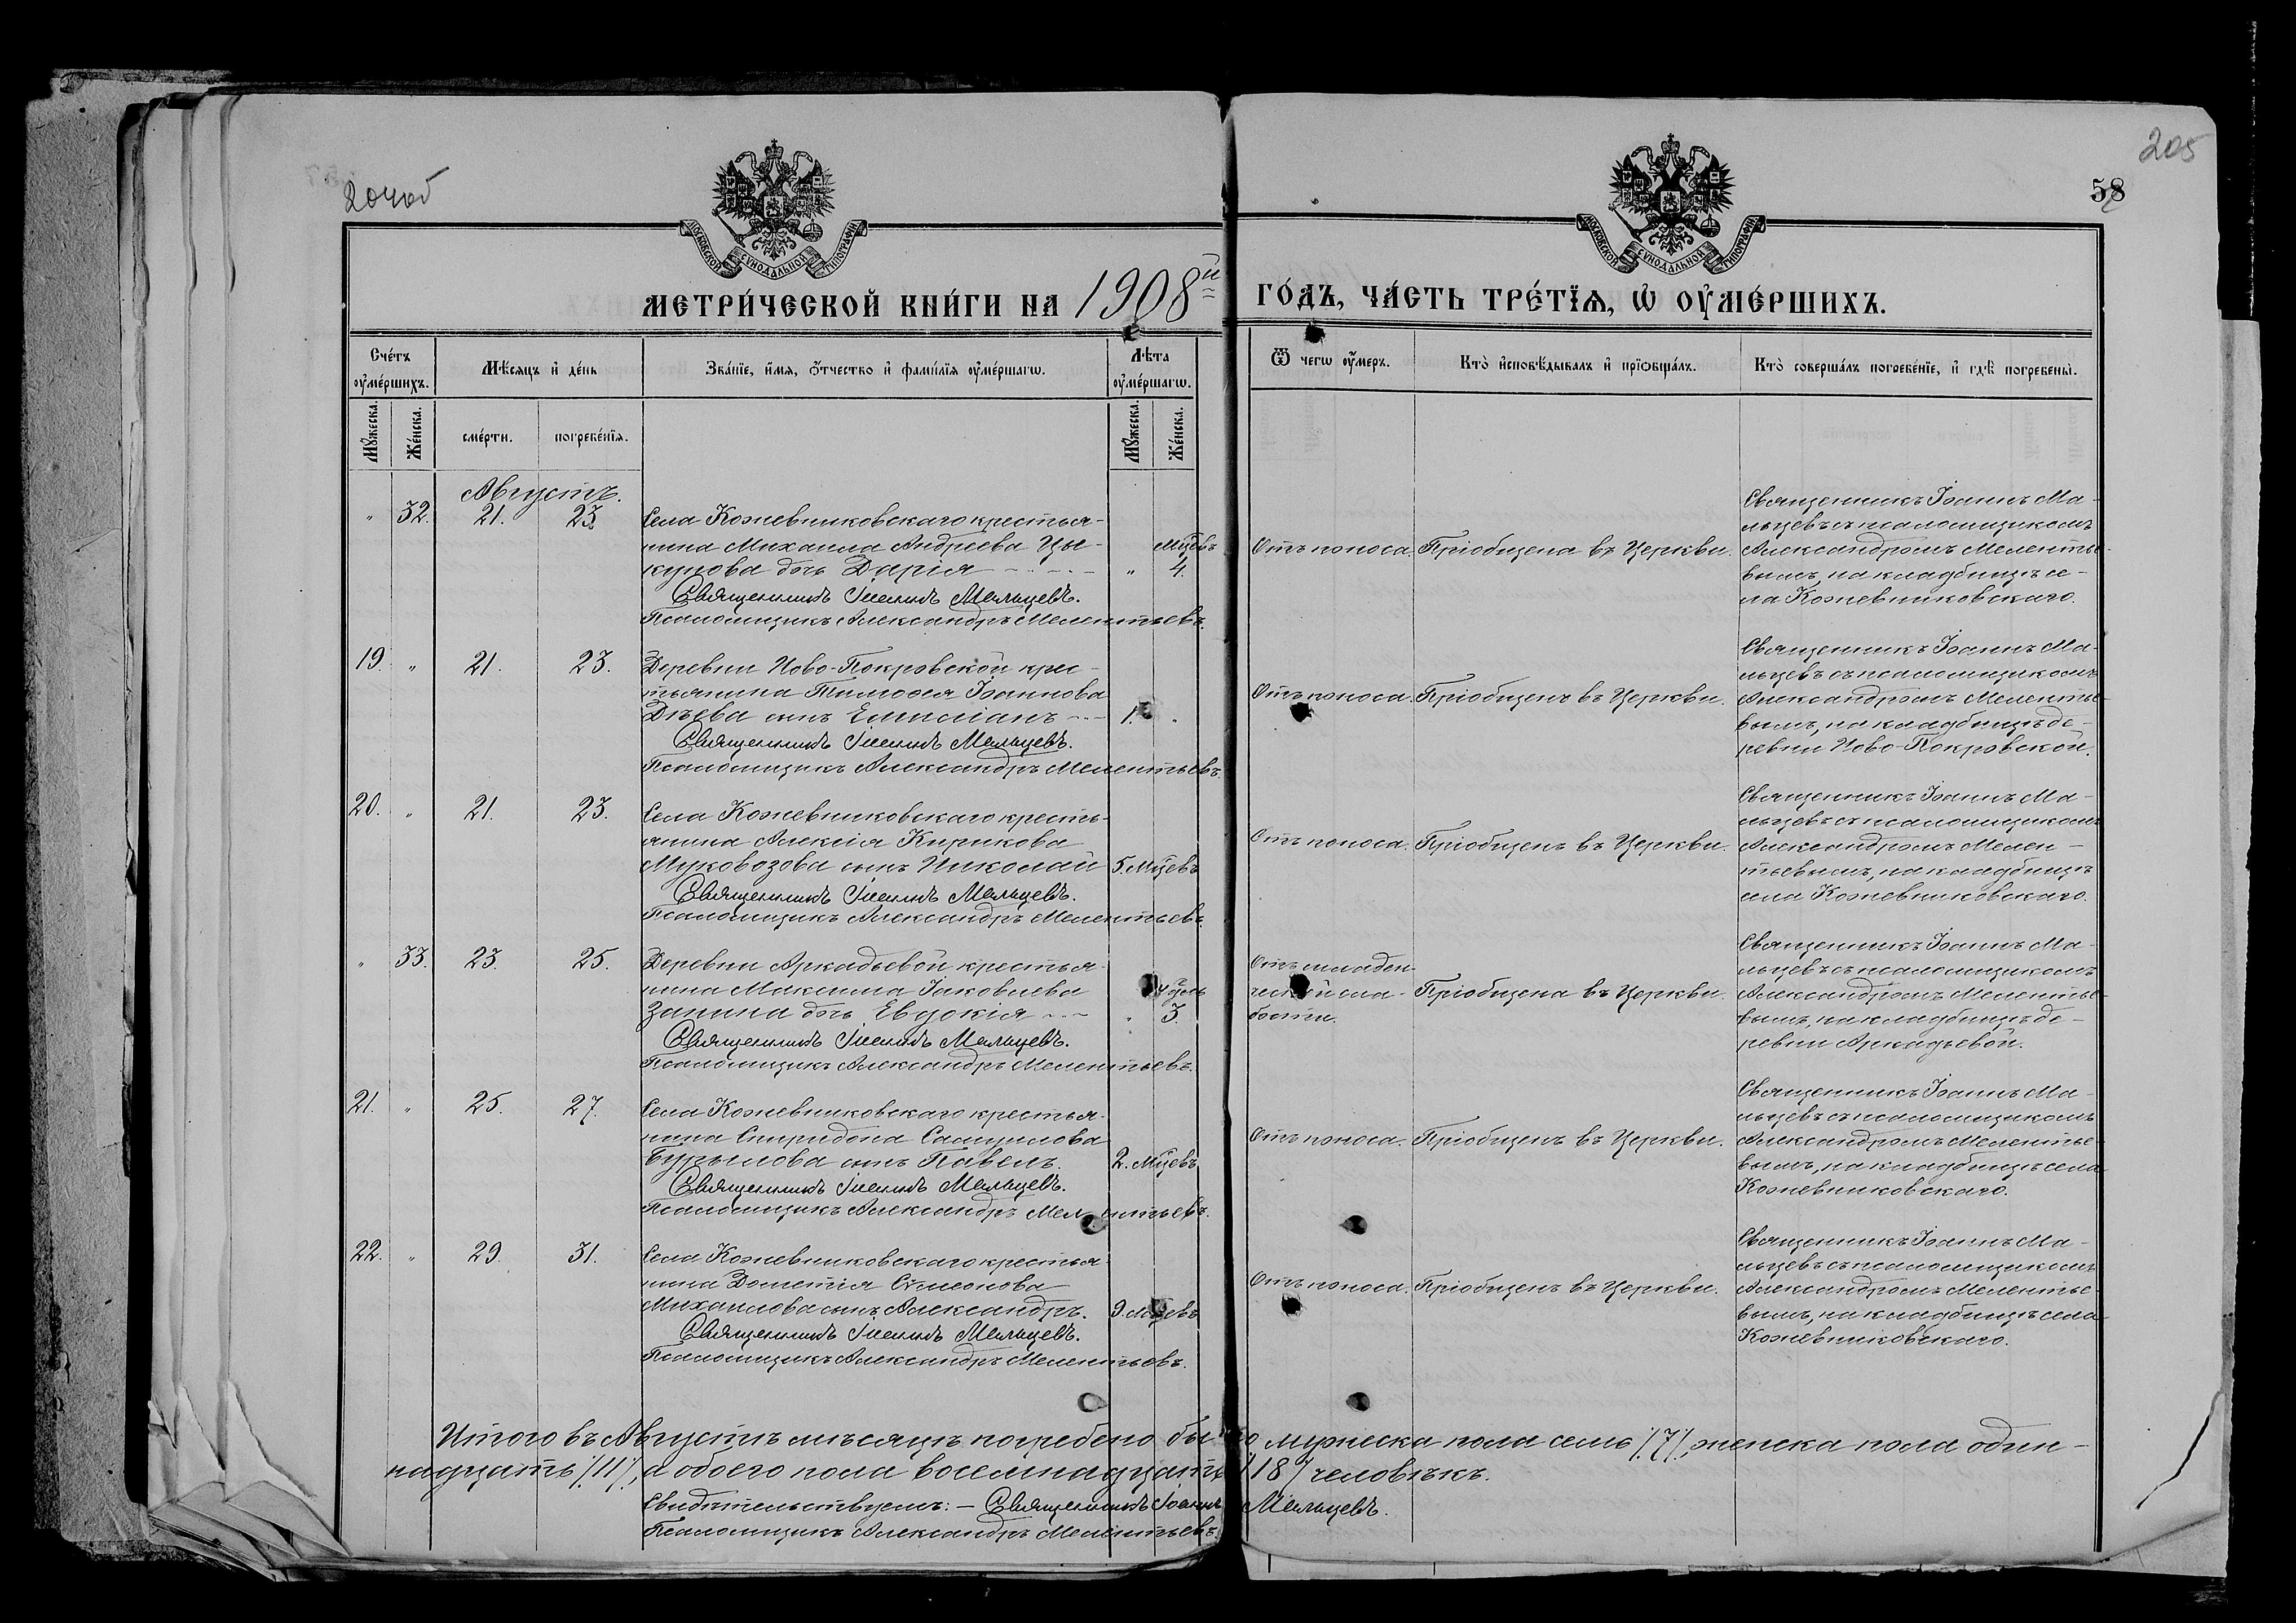 204об
205
58
МОСКОВСКОЙ СѴНОДАЛЬНОЙ ТИПОГРАФІИ
МОСКОВСКОЙ СѴНОДАЛЬНОЙ ТИПОГРАФІИ
МЕТРИ́ЧЕСКОЙ КНИ́ГИ НА 1908й ГО́ДЪ, ЧА́СТЬ ТРЕ́ТЇѦ, Ѡ҆ ОУ҆МЕ́РШИХЪ.
Сче́тъ оу҆ме́ршихъ.
Мѣ́сѧцъ и҆ де́нь
Зва́нїе, и҆́мѧ, ѻ҆́тчество и҆ фами́лїѧ оу҆ме́ршагѡ.
Лѣ́та оу҆ме́ршагѡ.
Ѿ чегѡ̀ оу҆́меръ.
Кто̀ и҆сповѣ́дывалъ и҆ прїѡбща́лъ.
Кто̀ соверша́лъ погребе́нїе, и҆ гдѣ̀ погребены̀.
Мꙋ́жеска.
Же́нска.
сме́рти.
погребе́нїѧ.
Мꙋ́жеска.
Же́нска.
Августъ.
" 32. 21. 23.
Села Кожевниковскаго крестья-
нина Михаила Андреева Цы-
кунова дочь Дарія
Мцевъ
" 4.
Священникъ Іоаннъ Мальцевъ.
Псаломщикъ Александръ Мелентьевъ.
Отъ поноса.
Пріобщена въ Церкви.
Священникъ Іоаннъ Ма-
льцевъ съ псаломщикомъ
Александромъ Мелентье-
вымъ, на кладбищѣ се-
ла Кожевниковскаго.
19. " 21. 23.
Деревни Ново-Покровской крес-
тьянина Тимоѳея Іоаннова
Дѣева сынъ Емиліанъ
1. "
Священникъ Іоаннъ Мальцевъ.
Псаломщикъ Александръ Мелентьевъ.
Отъ поноса.
Пріобщенъ въ Церкви.
Священникъ Іоаннъ Ма-
льцевъ съ псаломщикомъ
Александромъ Мелентье-
вымъ, на кладбищѣ де-
ревни Ново-Покровской.
20. " 21. 23.
Села Кожевниковскаго кресть-
янина Алексія Кирикова
Муковозова сынъ Николай
5. Мцевъ
Священникъ Іоаннъ Мальцевъ.
Псаломщикъ Александръ Мелентьевъ.
Отъ поноса.
Пріобщенъ въ Церкви.
Священникъ Іоаннъ Ма-
льцевъ съ псаломщикомъ
Александромъ Мелен-
тьевымъ, на кладбищѣ
села Кожевниковскаго.
" 33. 23. 25.
Деревни Аркадьевой крестья-
нина Максима Іаковлева
Занина дочь Евдокія
" 3.
Священникъ Іоаннъ Мальцевъ.
Псаломщикъ Александръ Мелентьевъ.
Отъ младен-
ческой сла-
бости.
Пріобщена въ Церкви.
Священникъ Іоаннъ Ма-
льцевъ съ псаломщикомъ
Александромъ Мелентье-
вымъ, на кладбищѣ де-
ревни Аркадьевой.
21. " 25. 27.
Села Кожевниковскаго крестья-
нина Спиридона Самуилова
Бурылова сынъ Павелъ.
2. Мцевъ
Священникъ Іоаннъ Мальцевъ.
Псаломщикъ Александръ Мелентьевъ.
Отъ поноса.
Пріобщенъ въ Церкви.
Священникъ Іоаннъ Ма-
льцевъ съ псаломщикомъ
Александромъ Мелентье-
вымъ, на кладбищѣ села
Кожевниковскаго.
22. " 29. 31.
Села Кожевниковскаго крестья-
нина Дометія Сѵмеонова
Михаилова сынъ Александръ.
9. Мцевъ
Священникъ Іоаннъ Мальцевъ.
Псаломщикъ Александръ Мелентьевъ.
Отъ поноса.
Пріобщенъ въ Церкви.
Священникъ Іоаннъ Ма-
льцевъ съ псаломщикомъ
Александромъ Мелентье-
вымъ, на кладбищѣ села
Кожевниковскаго.
Итого въ Августѣ мѣсяцѣ погребено было мужеска пола семь /7/, женска пола один-
надцать /11/, а обоего пола восемнадцать /18/ человѣкъ.
Свидѣтельствуемъ: – Священникъ Іоаннъ Мальцевъ.
Псаломщикъ Александръ Мелентьевъ.